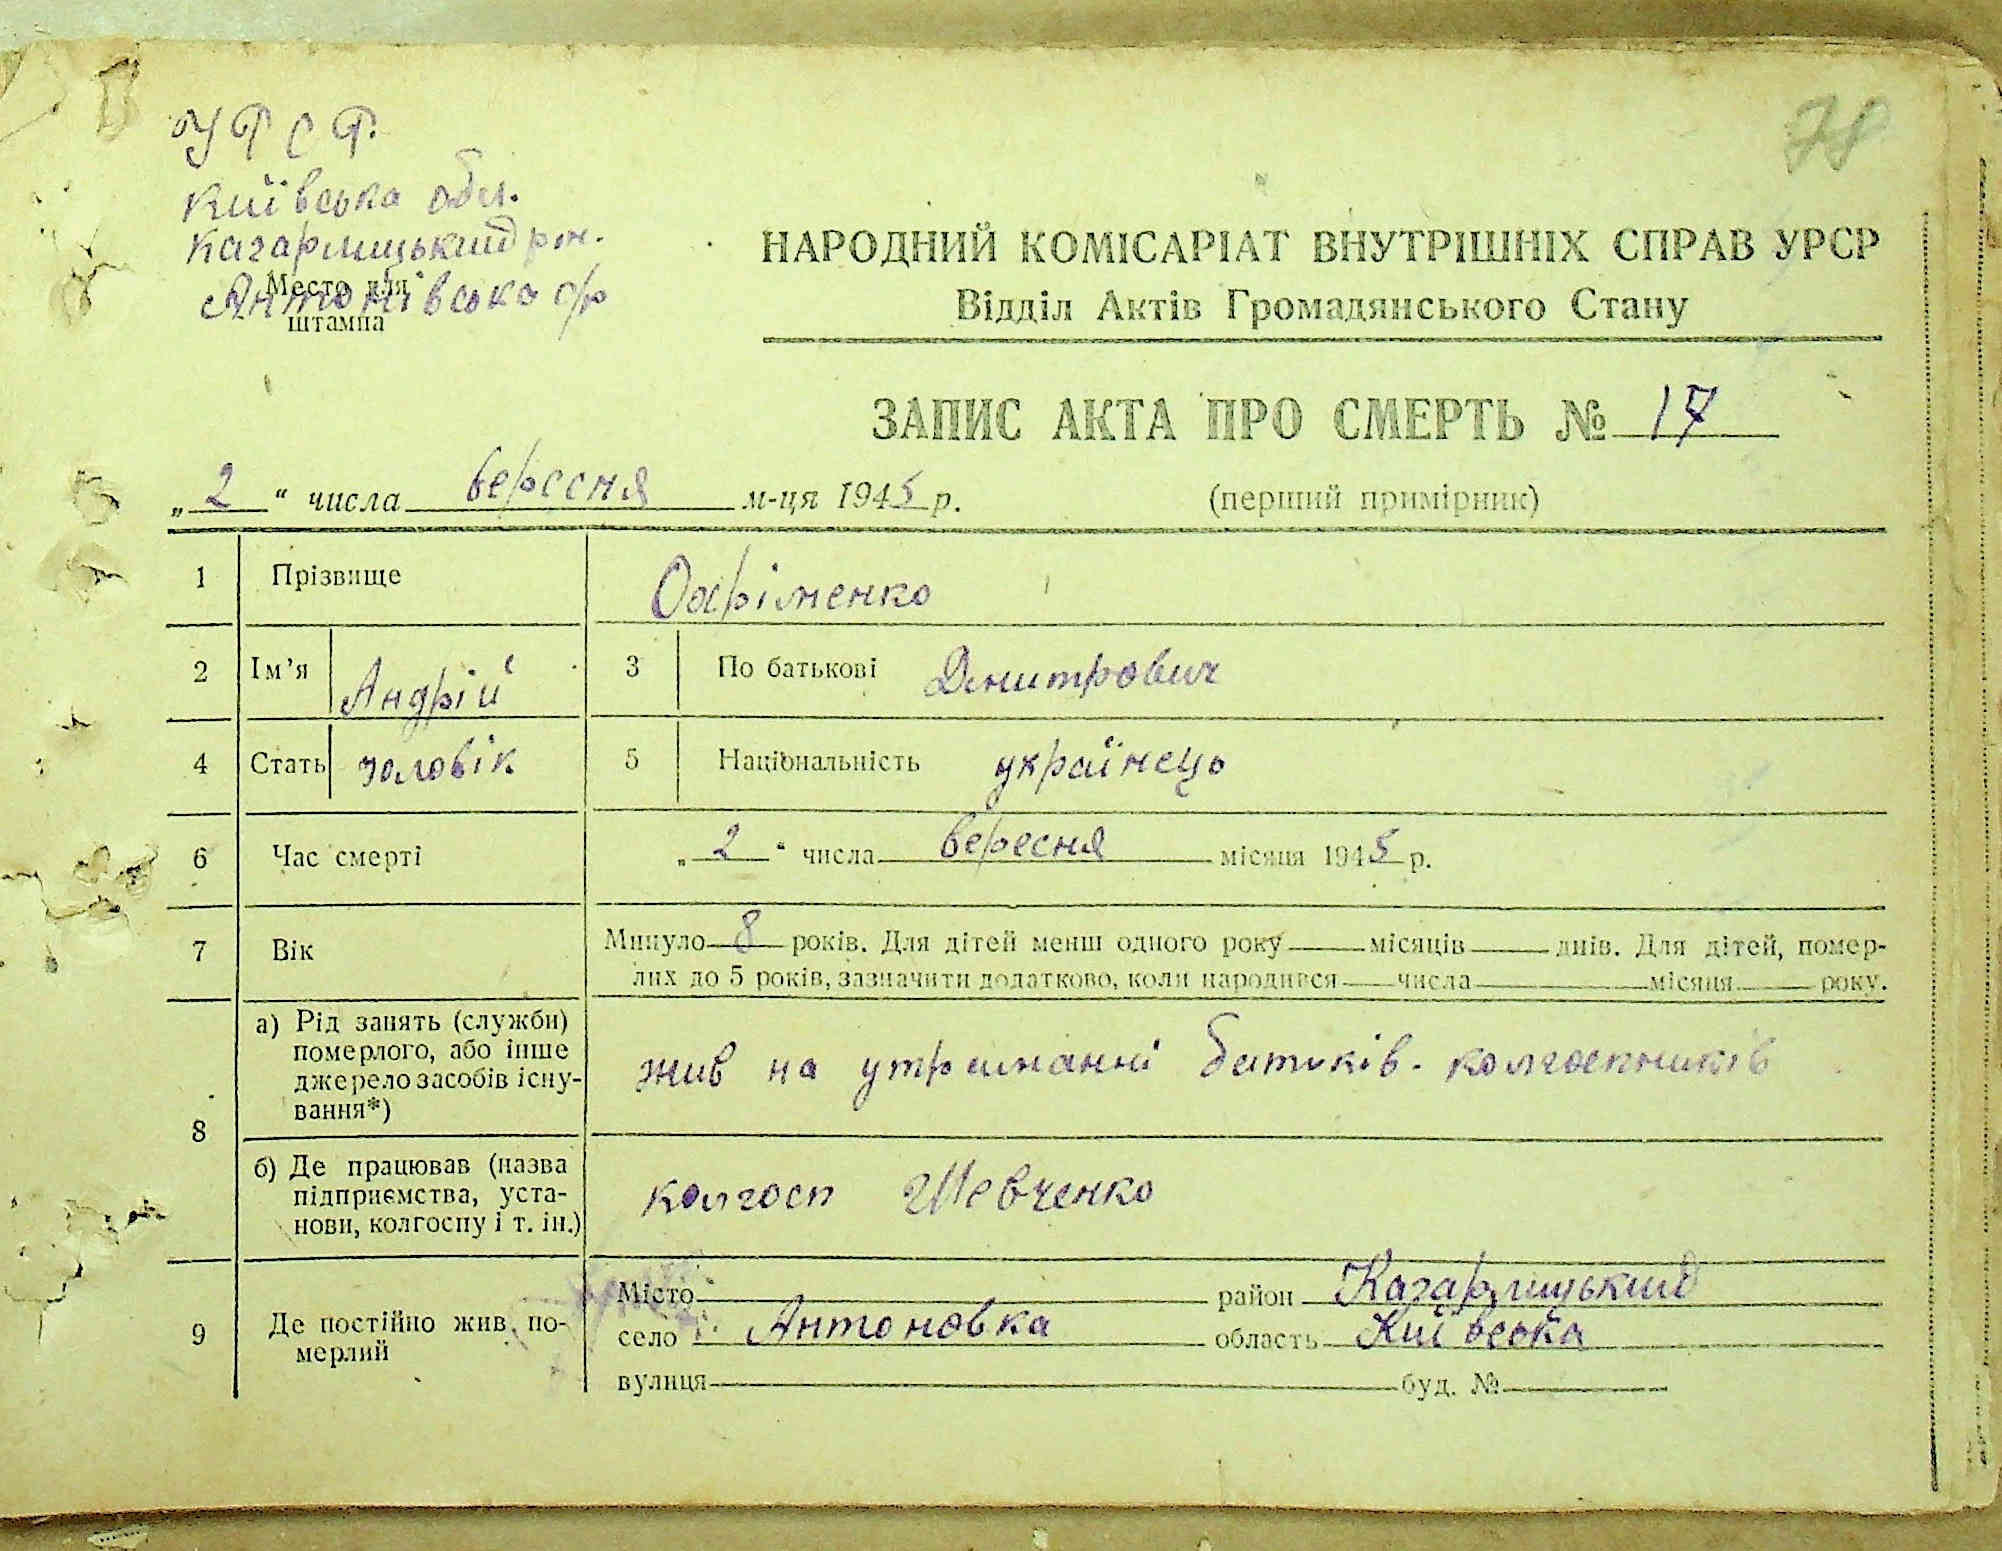 УРСР.
78
Київська обл.
Кагарлицький рн.
Место для
штампа
Антонівська с/р
НАРОДНИЙ КОМІСАРІАТ ВНУТРІШНІХ СПРАВ УРСР
Відділ Актів Громадянського Стану
ЗАПИС АКТА ПРО СМЕРТЬ № 17
„ 2 “ числа вересня м-ця 1945 р. (перший примірник)
1 Прізвище Охріменко
2 Ім’я Андрій 3 По батькові Дмитрович
4 Стать чоловік 5 Національність українець
6 Час смерті „ 2 “ числа вересня місяця 1945 р.
7 Вік Минуло 8 років. Для дітей менш одного року місяців днів. Для дітей, помер-
лих до 5 років, зазначити додатково, коли народився числа місяця року.
8 а) Рід занять (служби)
померлого, або інше
джерело засобів існу-
вання*)
жив на утриманні батьків - колгоспників
б) Де працював (назва
підприємства, уста-
нови, колгоспу і т. ін.)
колгосп Шевченко
9 Де постійно жив по-
мерлий
Місто район Кагарлицький
село Антоновка область Київська
вулиця буд. №